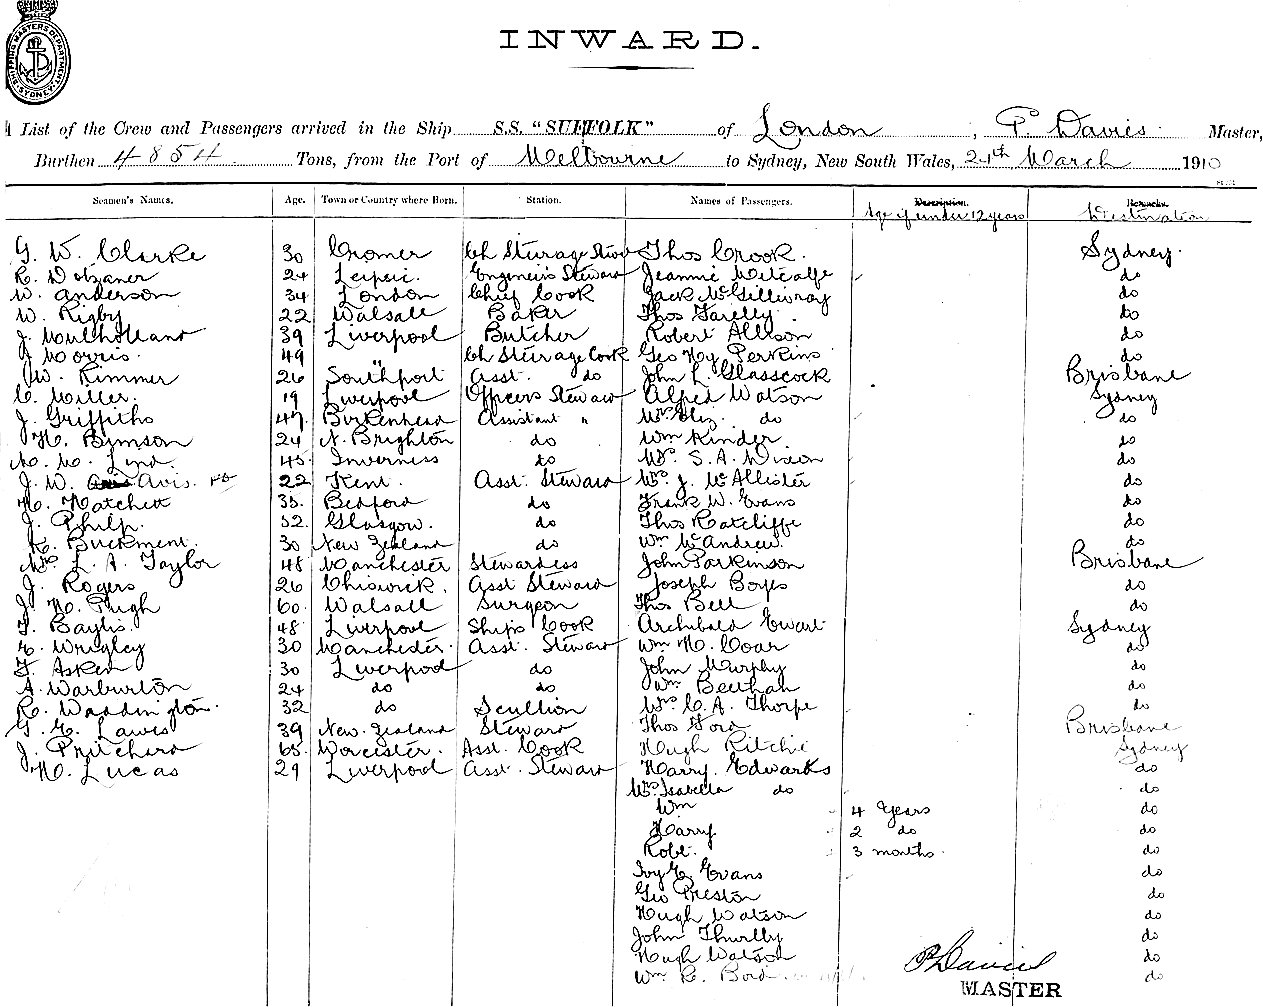 SHIPPING MASTERS DEPARTMENT. SYDNEY.
INWARD.
List of the Crew and Passengers arrived in the Ship S.S. "SUFFOLK" of London, P. Davies Master,
Burthen 4854 Tons, from the Port of Melbourne to Sydney, New South Wales, 24th March 1910
Seamen's Names. Age. Town or Country where Born. Station. Names of Passengers. Description. Remarks.
Age if under 12 years Destination
G. W. Clarke 30 Cromer Ch Steerage Stew Thos Crook Sydney
24 Leipsic Engineers Steward Jeannie Metcalfe do
W. Anderson 34 London Chief Cook Jack McGillivray do
W. Rigby 22 Walsall Baker Thos Farelly do
J. Mulholland 39 Liverpool Butcher Robert Allison do
Morris 49 " Ch Steerage Cook Geo Hy Perkins do
W. Rimmer 26 Southport Asst. do John L. Glasscock Brisbane
C. Miller 19 Liverpool Officers Steward Alfred Watson Sydney
J. Griffiths 47 Birkenhead Assistant " Mrs Eliz. do do
H. Bimson 24 N. Brighton do Wm Kinder do
Lind 45 Inverness do Mrs. S. A. Nixon do
J. W. Avis 22 Kent Asst. Steward Mrs. J. McAllister do
H. Hatchett 35 Bedford do Frank W. Evans do
J. Philp. 32 Glasgow. do Thos Ratcliffe do
R. Buckment. 30 New Zealand do Wm McAndrew. do
Mrs L. A. Taylor 48 Manchester Stewardess John Parkinson Brisbane
J. Rogers 26 Chiswick. Asst Steward Joseph Boyes do
J. H. Pugh 60 Walsall Surgeon Thos Bell do
T. Baylis. 48 Liverpool Ships Cook Archibald Ewart Sydney
E. Wrigley 30 Manchester. Asst. Steward Wm H. Coar do
T. Asken 30 Liverpool do John Murphy do
A. Warburton 24 do do Wm Beethah do
R. Waddington. 32 do Scullion Mrs C. A. Thorpe do
G. E. Lawis 39 New Zealand Steward Thos Ford Brisbane
J. Pritchard 65 Worcester. Asst. Cook Hugh Ritchie Sydney
H. Lucas 29 Liverpool Asst. Steward Harry. Edwards do
Mrs Isabella do do
Wm 4 Years do
Harry 2 do do
Robt. 3 months. do
Ivy E. Evans do
Geo Preston do
Hugh Watson do
John Thurlby do
Hugh Watson do
Wm R. do
P Davies
MASTER